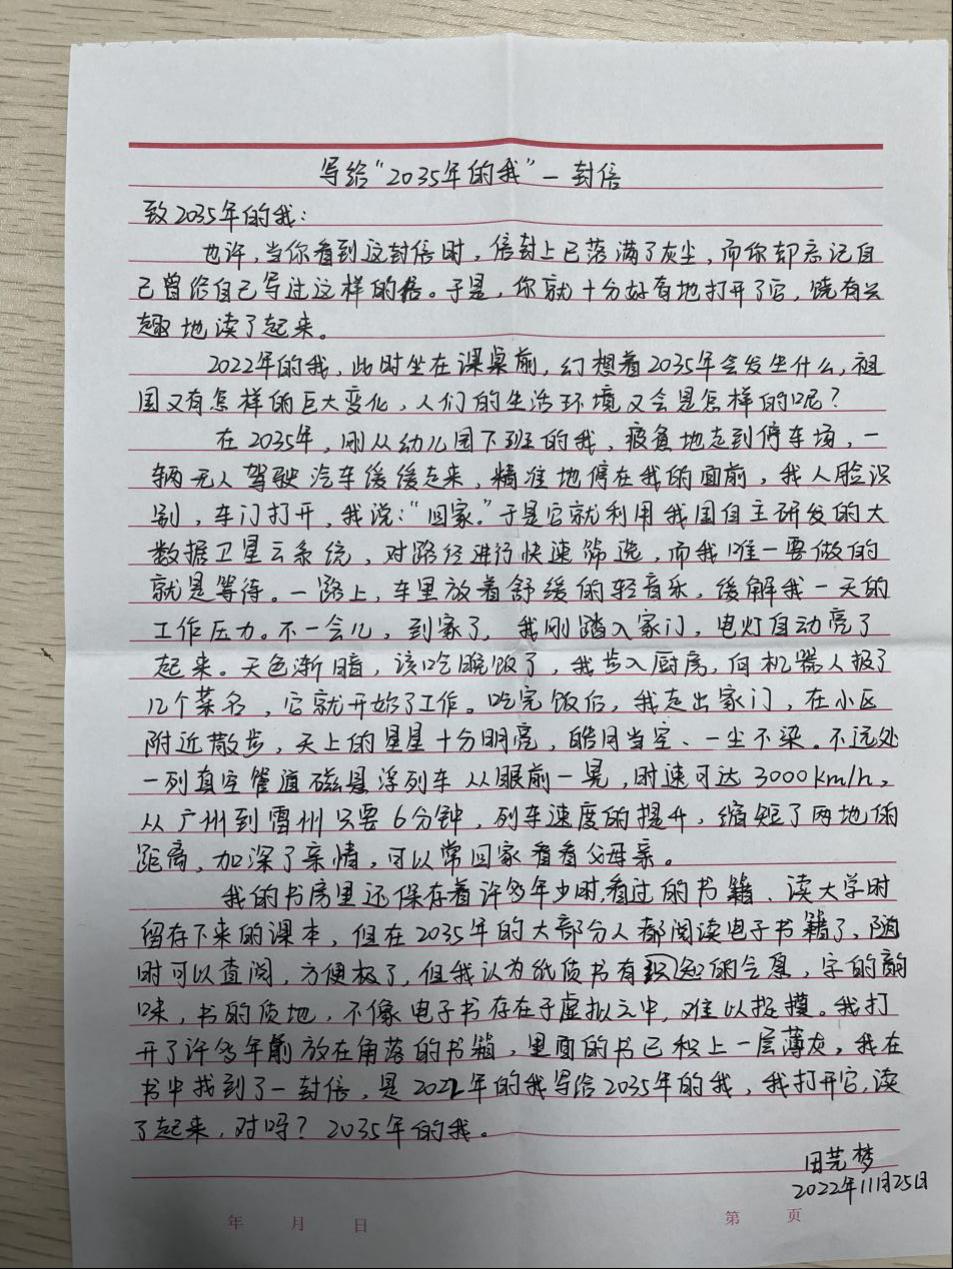 写给“2035年的我”一封信
致2035年的我:
也许,当你看到这封信时,信封上已落满了灰尘,而你却忘记自
己曾给自己写过这样的信。于是,你就十分好奇地打开了它,饶有兴
趣地读了起来。
2022年的我,此时坐在课桌前,幻想着2035年会发生什么,祖
国又有怎样的巨大变化、人们的生活环境又会是怎样的呢?
在2035年,刚从幼儿园下班的我、疲惫地走到停车场,一
辆无人驾驶汽车缓缓走来,精准地停在我的面前,我人脸识
别,车门打开,我说:“回家。”于是它就利用我国自主研发的大
数据卫星云系统,对路径进行快速筛选,而我唯一要做的
就是等待。一路上,车里放着舒缓的轻音乐,缓解我一天的
工作压力。不一会儿,到家了,我刚踏入家门,电灯自动亮了
起来。天色渐暗,该吃晚饭了,我步入厨房,向机器人报了
几个菜名,它就开始了工作。吃完饭后,我走出家门,在小区
附近散步,天上的星星十分明亮,皓月当空、一尘不染。不远处
一列真空管道磁悬浮列车从眼前一晃,时速可达3000km/h,
从广州到雷州只要6分钟,列车速度的提升,缩短了两地的
距离,加深了亲情,可以常回家看看父母亲。
我的书房里还保存着许多年少时看过的书籍、读大学时
留存下来的课本,但在2035年的大部分人都阅读电子书籍了,随
时可以查阅,方便极了,但我认为纸质书有的含意,字的韵
味,书的质地,不像电子书存在于虚拟之中,难以捉摸。我打
开了许多年前放在角落的书箱,里面的书已积上一层薄灰,我在
书中找到了一封信,是2022年的我写给2035年的我,我打开它,读
了起来,对吗?2035年的我。
田芫梦
2022年11月25日
年 月 日 第 页